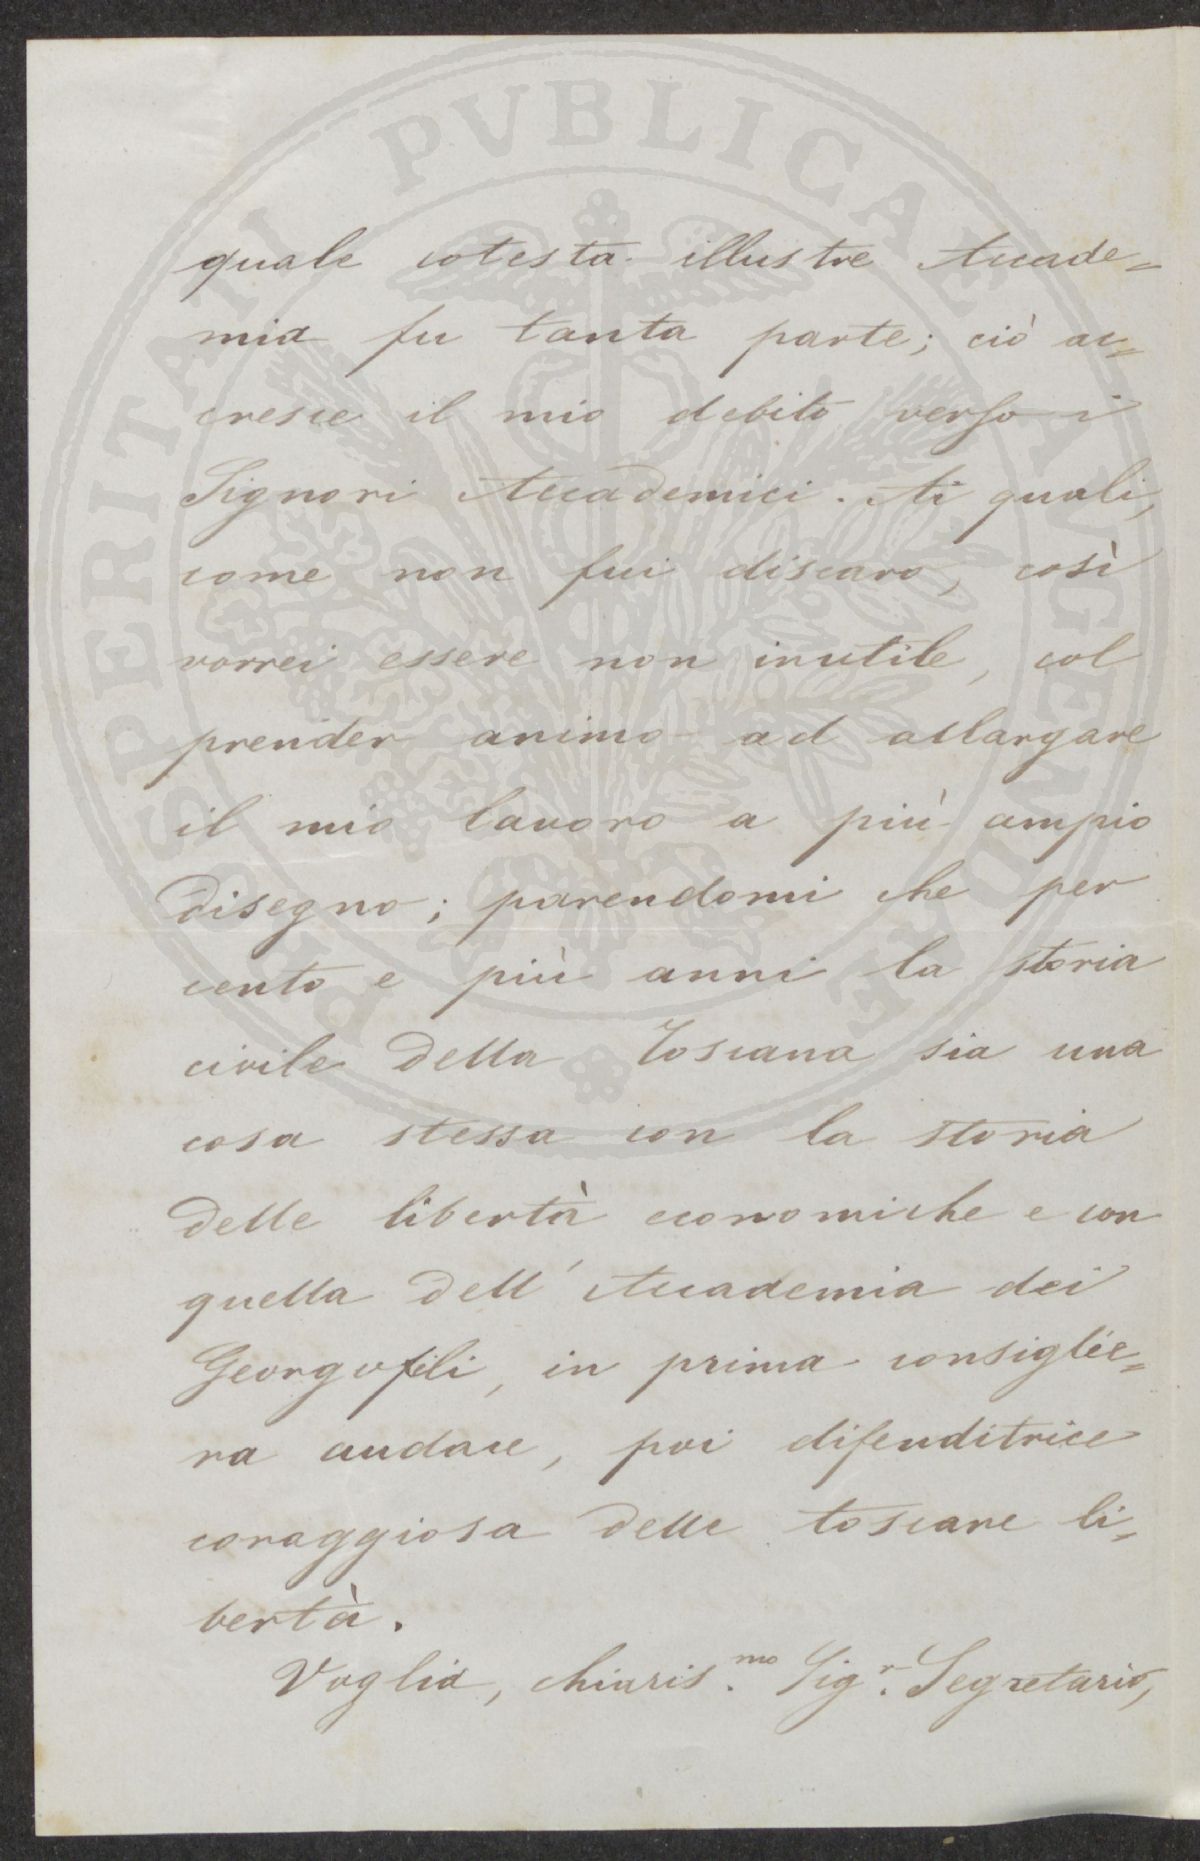 quale cotesta illustre Accade=
mia fu tanta parte; ciò ac=
cresce il mio debito verso i
Signori Accademici. Ai quali,
come non fui discaro, così
vorrei essere non inutile, col
prender animo ad allargare
il mio lavoro a più ampio
disegno; parendomi che per
cento e più anni la storia
civile della Toscana sia una
cosa stessa con la storia
delle libertà economiche e con
quella dell'Accademia dei
Georgofili, in prima consiglie=
ra audace, poi difenditrice
coraggiosa delle toscane li=
bertà.
Voglia, chiaris.mo Sig.r Segretario,
PROSPERITATI PVBLICAE AVGENDAE